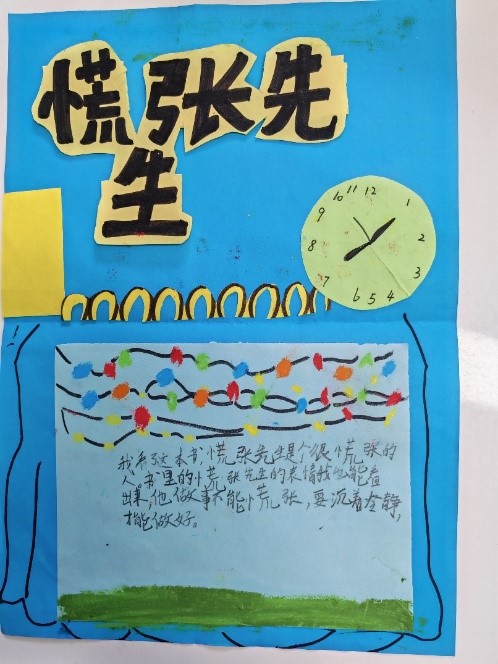 慌张先
生
10 11 12
9 1
8 2
7 3
6 5 4
我看这本书,慌张先生是个很慌张的
人。书里的慌张先生的表情我也能看
出来,他做事不能慌张,要沉着冷静,
才能做好。